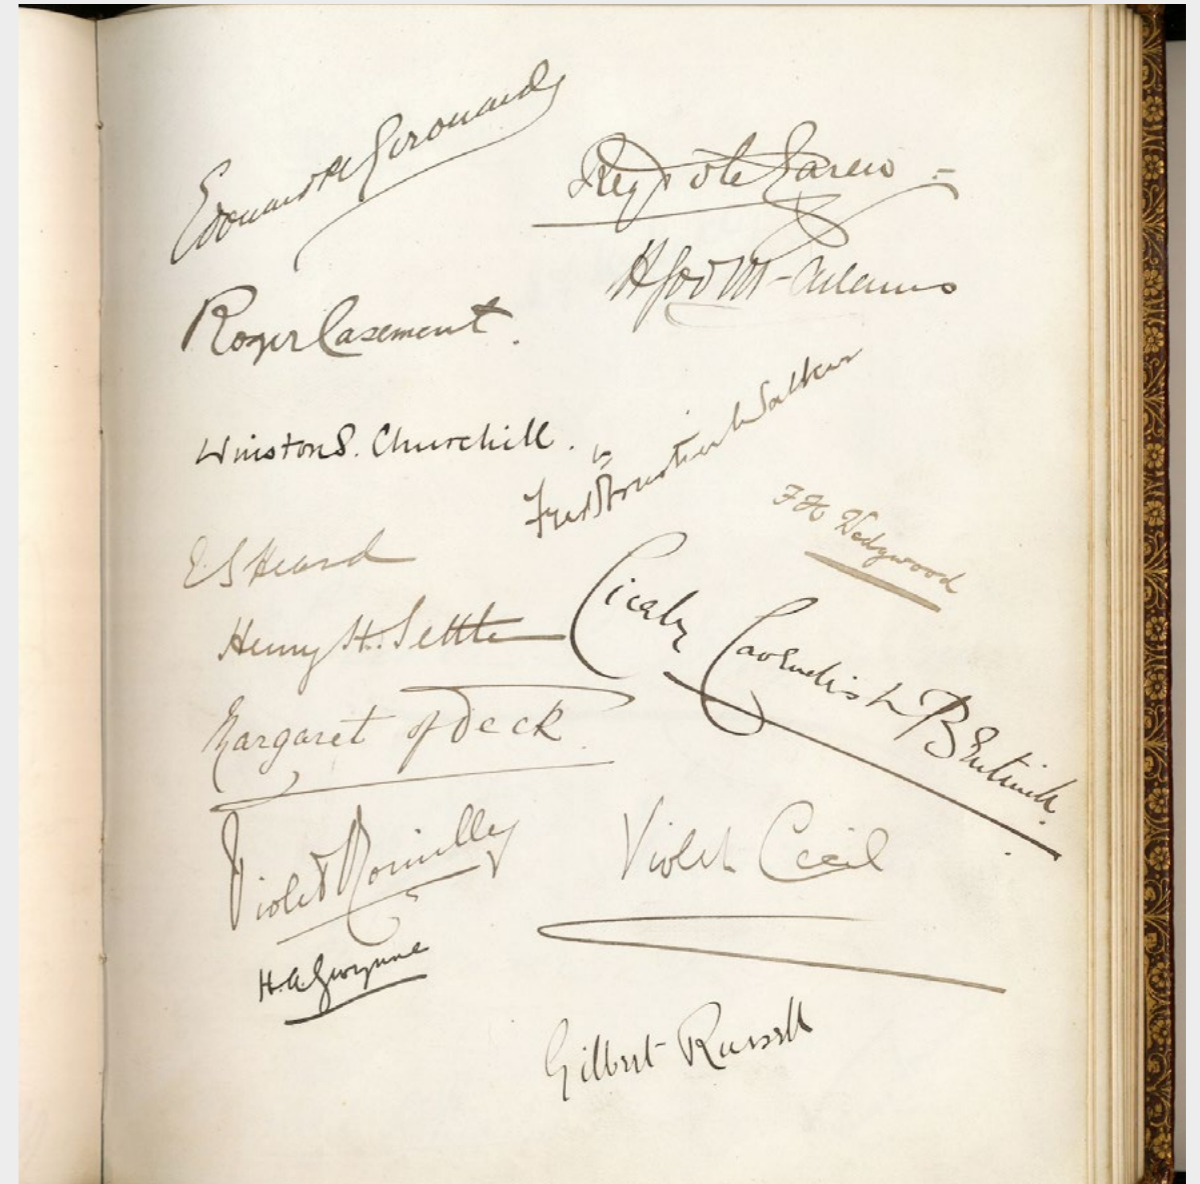 Edouard Girouard
Reg Pole Carew
Roger Casement.
H Goold-Adams
Winston S. Churchill.
Fred Forestier Walker
F H Wedgwood
E S Heard
Henry H. Settle
Cicely Cavendish Bentinck.
Margaret of Teck
Violet Romilly
Violet Cecil
H.A. Gwynne
Gilbert Russell